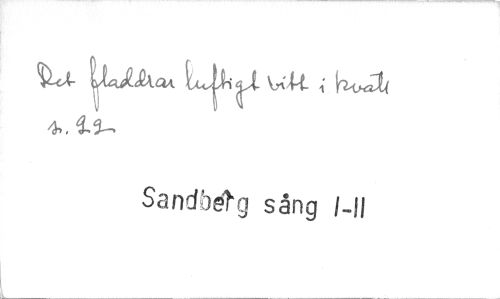 Det fladdrar luftigt vitt i kväll
s. 22
Sandberg sång I-II